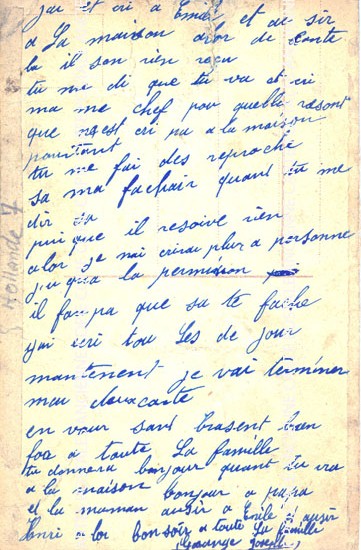 jai et cri a Emile et au sir
a La maison alor de conte
la il son rien reçu
tu me di que tu va et cri
ma me chef pour quelle raisont
que nest cri pa a la maison
pourtant
tu me fai des reproche
sa ma fachair quant tu me
dir sa
pui que il resoive rien
alor je nai crirai plu a personne
juqua la permision
il fau pa que sa te fache
jai icri tou Les de jour
mantenent je vai terminer
mau deuxcarte
en vour sant brasent bien
for a toute La famille
tu donnera bonjour quant tu ira
a la maison bonjour a papa
et la maman ausir a Emile ausir
henri alor bonsoir a toute La famille
Hollande 7